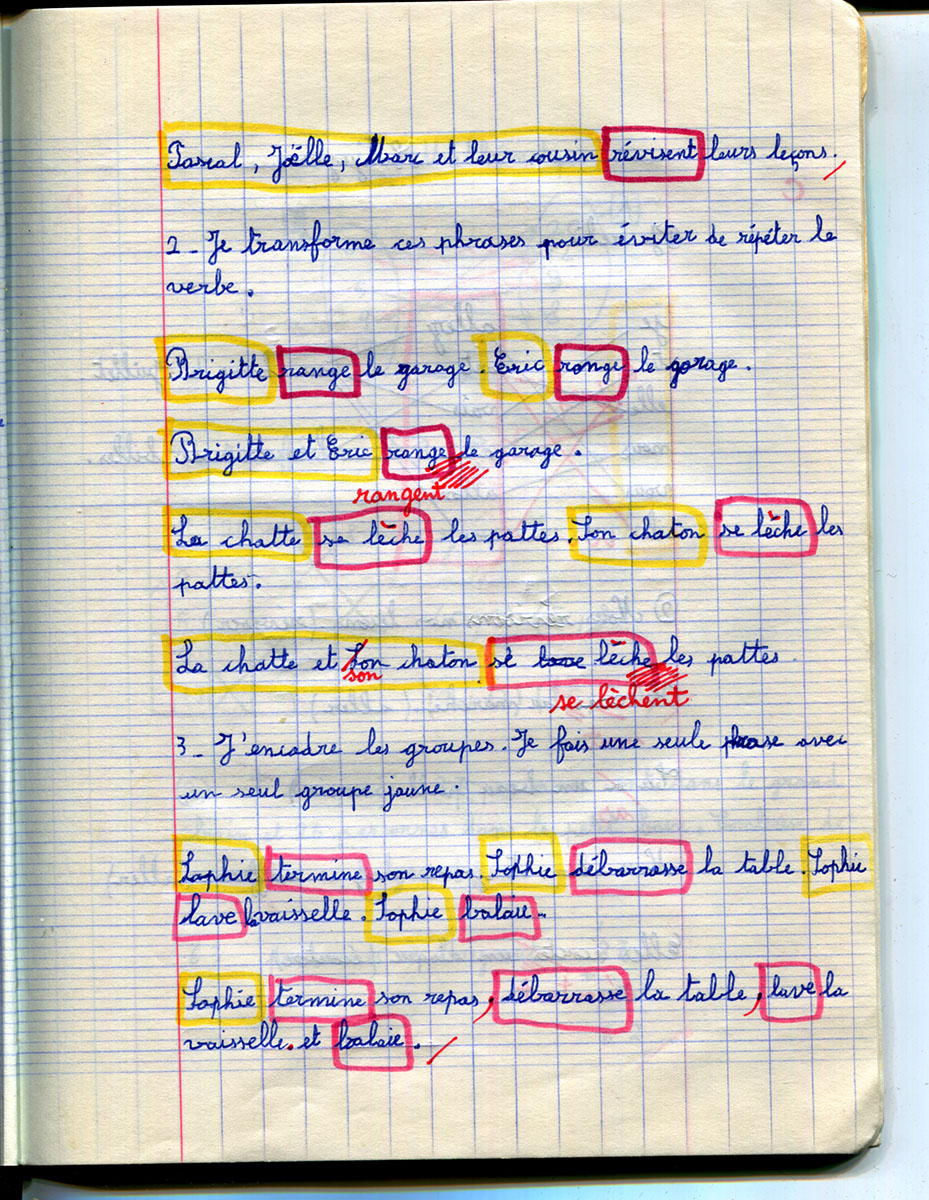 Pascal, Joëlle, Marc et leur cousin révisent leurs leçons.
2 - Je transforme ces phrases pour éviter de répéter le
verbe.
Brigitte range le garage. Eric range le garage.
Brigitte et Eric range le garage.
rangent
La chatte se lèche les pattes. Son chaton se lèche les
pattes.
La chatte et Son chaton se lèche les pattes.
son
se lèchent
3 - J'encadre les groupes. Je fais une seule phrase avec
un seul groupe jaune.
Sophie termine son repas. Sophie débarrasse la table. Sophie
lave la vaisselle. Sophie balaie.
Sophie termine son repas, débarrasse la table, lave la
vaisselle. et balaie.